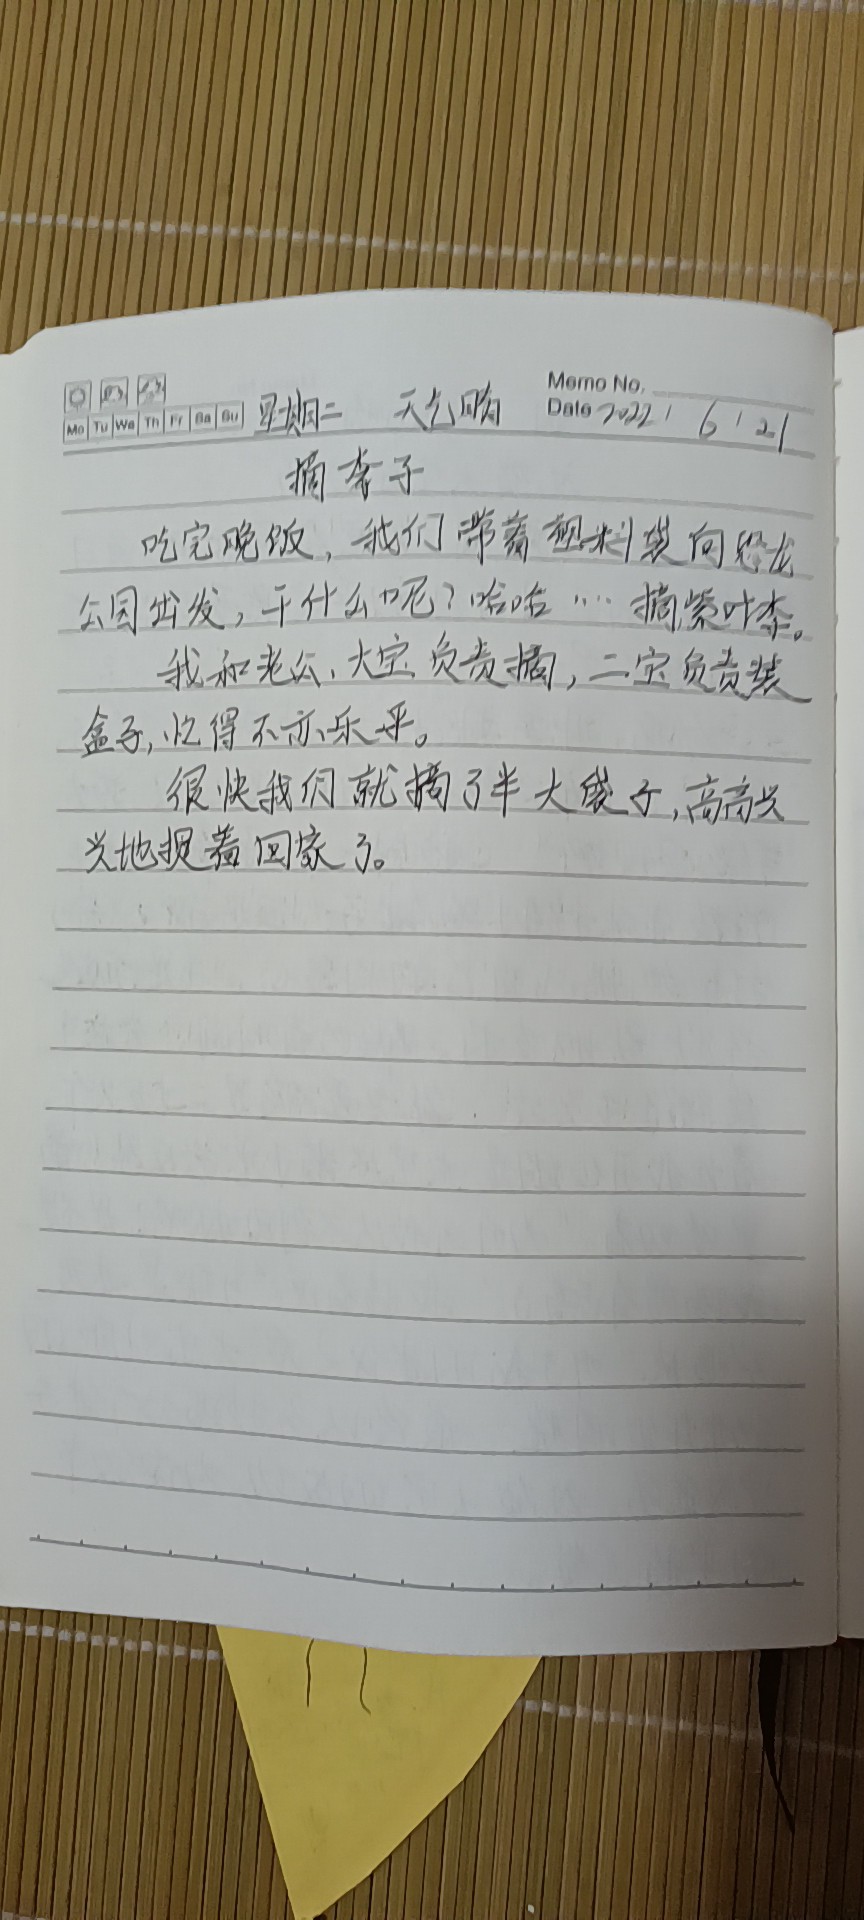 Memo No.
Mo Tu We Th Fr Sa Su 星期二 天气晴 Date 2022 / 6 / 21
摘李子
吃完晚饭，我们带着塑料袋向恐龙
公园出发，干什么呢？哈哈……摘紫叶李。
我和老公、大宝负责摘，二宝负责装
盒子，忙得不亦乐乎。
很快我们就摘了半大袋子，高高兴
兴地提着回家了。